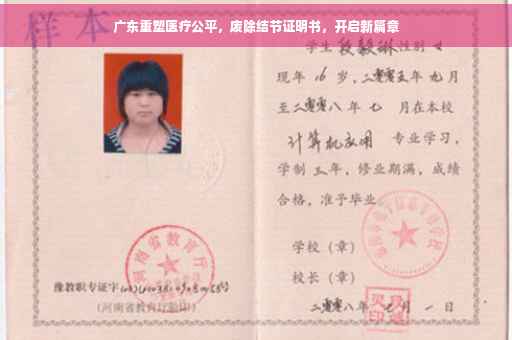 广东重塑医疗公平，废除结节证明书，开启新篇章
样本
学生 段毅琳 性别 女
现年 16 岁，二零零五年 九月
至二零零八年 七 月在本校
计算机应用 专业学习，
学制 三 年，修业期满，成绩
合格，准予毕业。
学校（章）
校长（章）
二零零八年 七 月 一 日
河南省教育厅
豫教职专证字
（河南省教育厅验印）